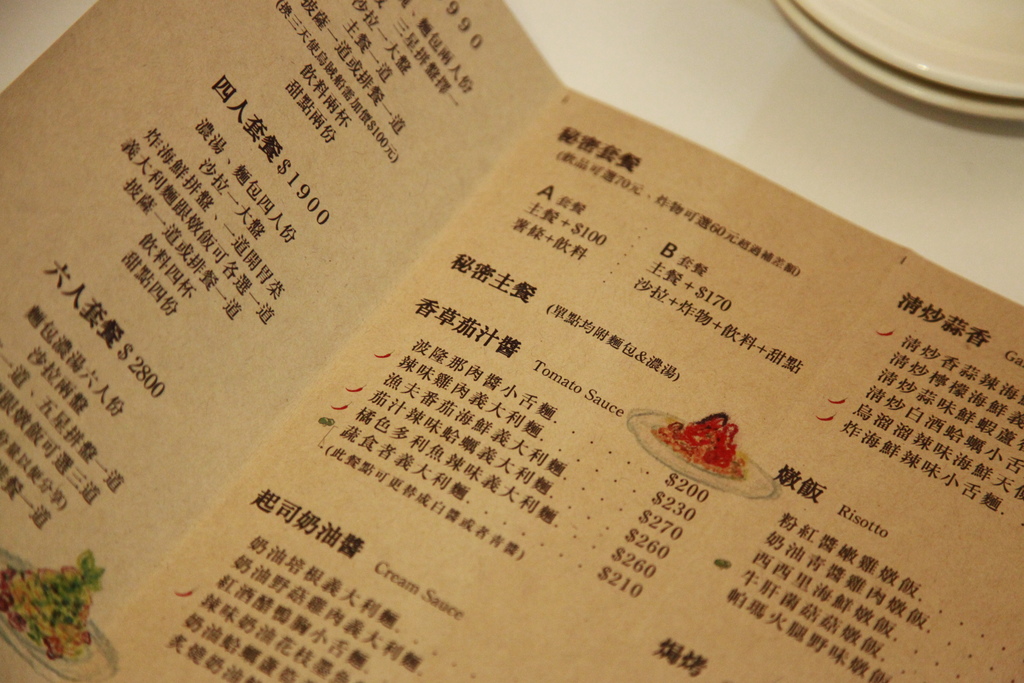 990
、麵包兩人份
、三星拼盤擇一
沙拉一大盤
主餐一道
披薩一道或排餐一道
(換三天使烏賊船需加價$100元)
飲料兩杯
甜點兩份
四人套餐$1900
濃湯、麵包四人份
沙拉一大盤
炸海鮮拼盤、一道開胃類
義大利麵跟燉飯可各選一道
披薩一道或排餐一道
飲料四杯
甜點四份
六人套餐$2800
麵包濃湯六人份
沙拉兩盤
一道、五星拼盤一道
跟燉飯可選三道
餐一道
秘密套餐
(飲品可選70元、炸物可選60元超過補差額)
A 套餐
主餐+$100
薯條+飲料
B 套餐
主餐+$170
沙拉+炸物+飲料+甜點
秘密主餐 (單點均附麵包&濃湯)
香草茄汁醬 Tomato Sauce
波隆那肉醬小舌麵 $200
辣味雞肉義大利麵 $230
漁夫番茄海鮮義大利麵 $270
茄汁辣味蛤蠣義大利麵 $260
橘色多利魚辣味義大利麵 $260
蔬食者義大利麵 $210
(此餐點可更替成白醬或者青醬)
起司奶油醬 Cream Sauce
奶油培根義大利麵
奶油野菇雞肉義大利麵
紅酒醋鴨胸小舌麵
辣味奶油花枝墨魚
奶油鮭鯛蘆
夾燒奶油
清炒蒜香 Ga
清炒香蒜辣海
清炒檸檬海鮮義
清炒蒜味鮮蝦蘆
清炒白酒蛤蠣小舌
烏溜溜辣味海鮮天使
炸海鮮辣味小舌麵
燉飯 Risotto
粉紅醬嫩雞燉飯
奶油青醬雞肉燉飯
西西里海鮮燉飯
牛肝菌菇菇燉飯
帕瑪火腿野味燉飯
焗烤